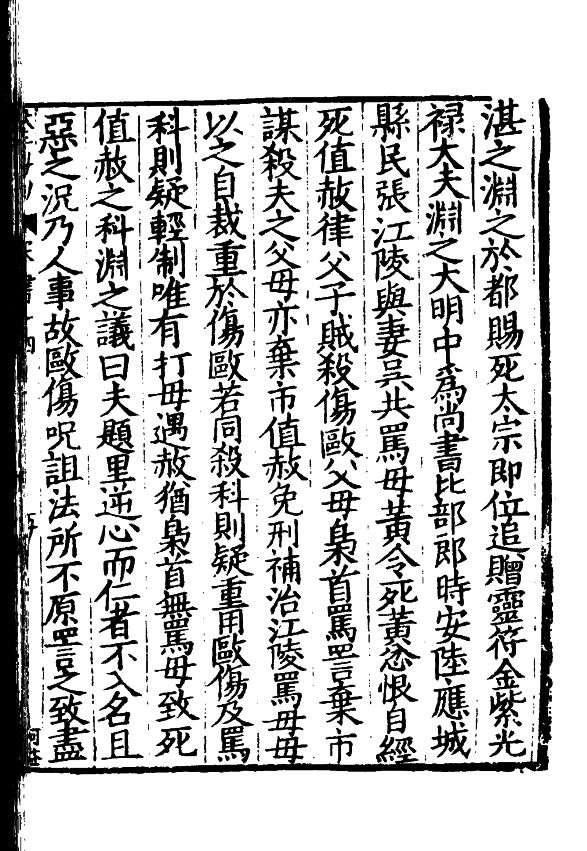 湛之淵之於都賜死太宗即位追贈靈符金紫光
禄大夫淵之大明中爲尚書比部郎時安陸應城
縣民張江陵與妻吳共罵母黃令死黃忿恨自經
死值赦律父子賊殺傷毆父母梟首罵詈棄市
謀殺夫之父母亦棄市值赦免刑補治江陵罵母母
以之自裁重於傷毆若同殺科則疑重用毆傷及罵
科則疑輕制唯有打母遇赦猶梟首無罵母致死
值赦之科淵之議曰夫題里逆心而仁者不入名且
惡之况乃人事故毆傷呪詛法所不原詈之致盡